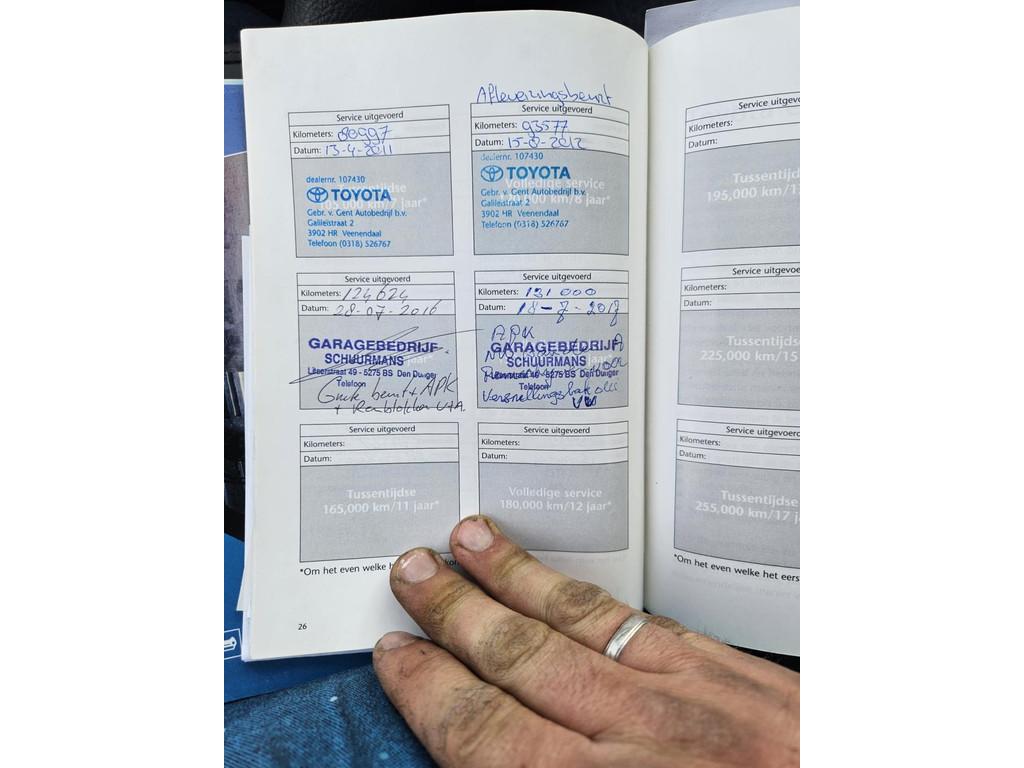 Service uitgevoerd
Kilometers: 80997
Datum: 13-4-2011
Tussentijdse
105,000 km/7 jaar*
dealernr. 107430
TOYOTA
Gebr. v. Gent Autobedrijf b.v.
Galileistraat 2
3902 HR Veenendaal
Telefoon (0318) 526767
Afleveringsbeurt
Service uitgevoerd
Kilometers: 93577
Datum: 15-8-2012
Volledige service
120,000 km/8 jaar*
dealernr. 107430
TOYOTA
Gebr. v. Gent Autobedrijf b.v.
Galileistraat 2
3902 HR Veenendaal
Telefoon (0318) 526767
Service uitgevoerd
Kilometers: 124624
Datum: 28-07-2016
GARAGEBEDRIJF
SCHUURMANS
49 - 5275 BS Den Dungen
Telefoon
beurt + APK
+ Remblokken V+A.
Service uitgevoerd
Kilometers: 131000
Datum: 18-7-2018
APK
GARAGEBEDRIJF
SCHUURMANS
49 - 5275 BS Den Dungen
Telefoon
Versnellingsbak olie
Service uitgevoerd
Kilometers:
Datum:
Tussentijdse
165,000 km/11 jaar*
Service uitgevoerd
Kilometers:
Datum:
Volledige service
180,000 km/12 jaar*
*Om het even welke
26
Service uitgevo
Kilometers:
Datum:
Tussentijds
195,000 km/1
Service uitgevoe
Kilometers:
Datum:
Tussentijds
225,000 km/15
Service uitgevoerd
Kilometers:
Datum:
Tussentijdse
255,000 km/17 j
*Om het even welke het eers